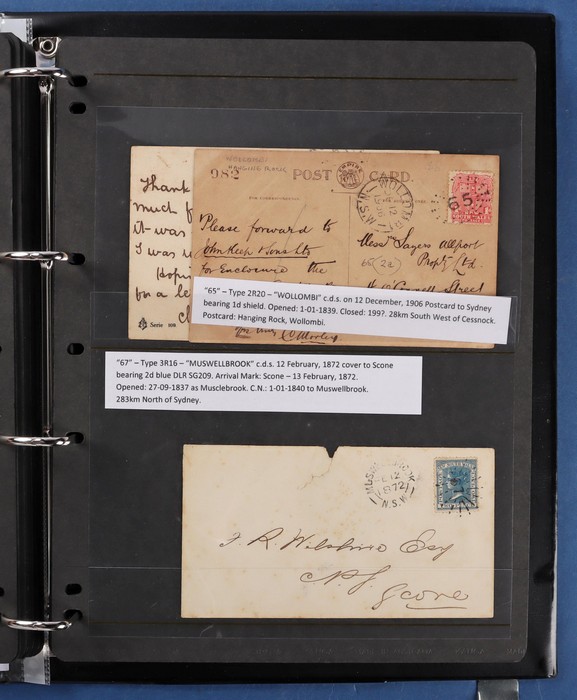 Thank
much f
it was
I was
Hopin
for a le
Serie
WOLLOMBI
HANGING ROCK
982
POST CARD.
EMPIRE
WOLLOMBI
N.S.W
65
Please forward to
John Keep & Sons Ltd
for Enclosure the
Messrs Sayers Allport
Propty Ltd.
Street
"65" – Type 2R20 – "WOLLOMBI" c.d.s. on 12 December, 1906 Postcard to Sydney
bearing 1d shield. Opened: 1-01-1839. Closed: 1997. 28km South West of Cessnock.
Postcard: Hanging Rock, Wollombi.
"67" – Type 3R16 – "MUSWELLBROOK" c.d.s. 12 February, 1872 cover to Scone
bearing 2d blue DLR SG209. Arrival Mark: Scone – 13 February, 1872.
Opened: 27-09-1837 as Musclebrook. C.N.: 1-01-1840 to Muswellbrook.
283km North of Sydney.
1872
N.S.W
J. R. Wilshire Esq
Scone